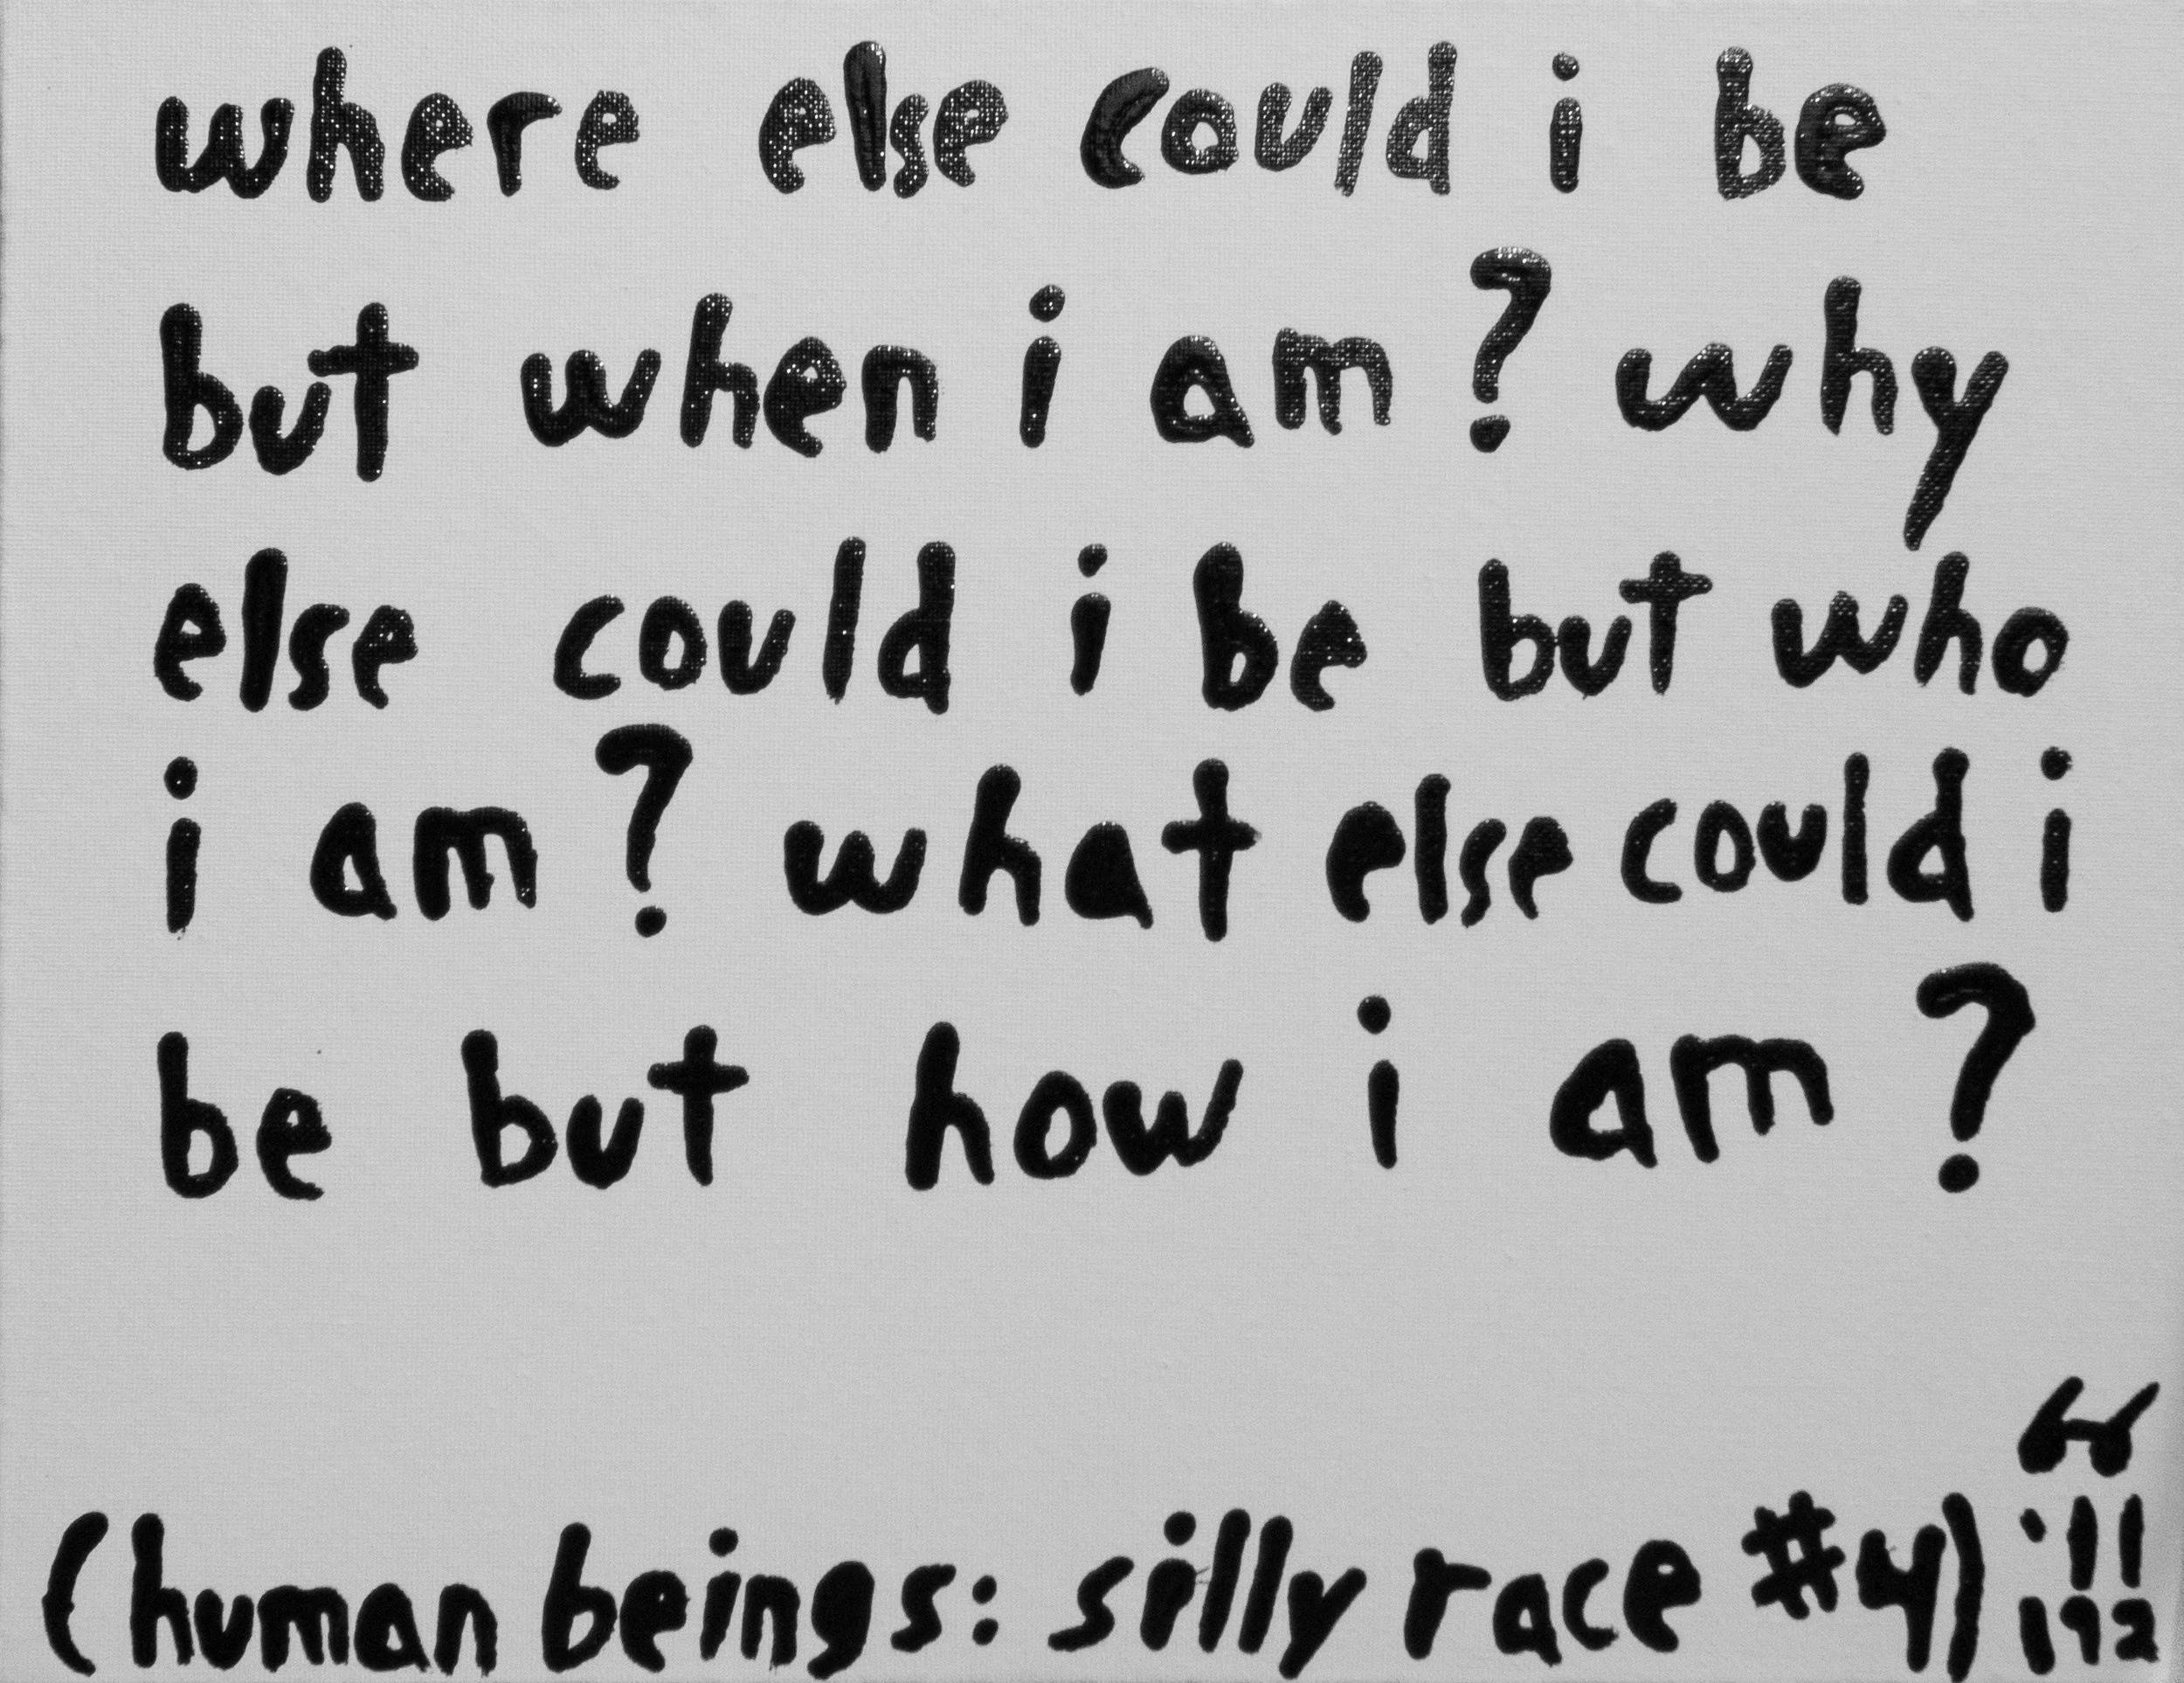 where else could i be
but when i am? why
else could i be but who
i am? what else could i
be but how i am?
(human beings: silly race #4) '11
192